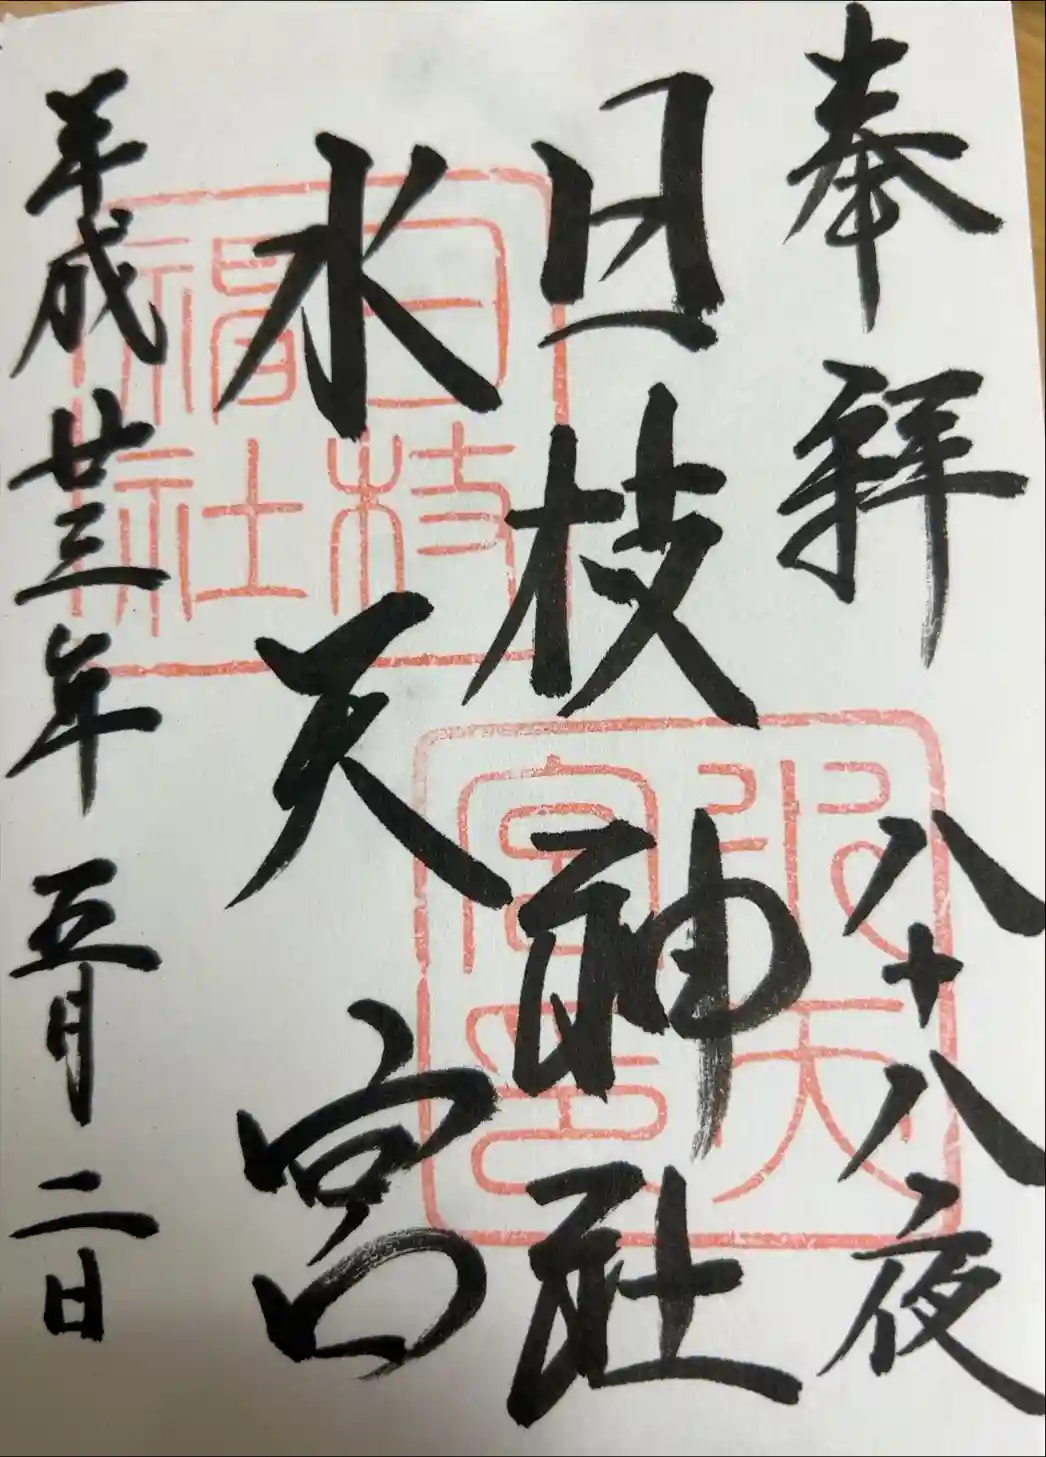 奉拜 八十八夜
日枝神社
水天宮
平成廿三年 五月二日
日枝
神社
水天
宮印